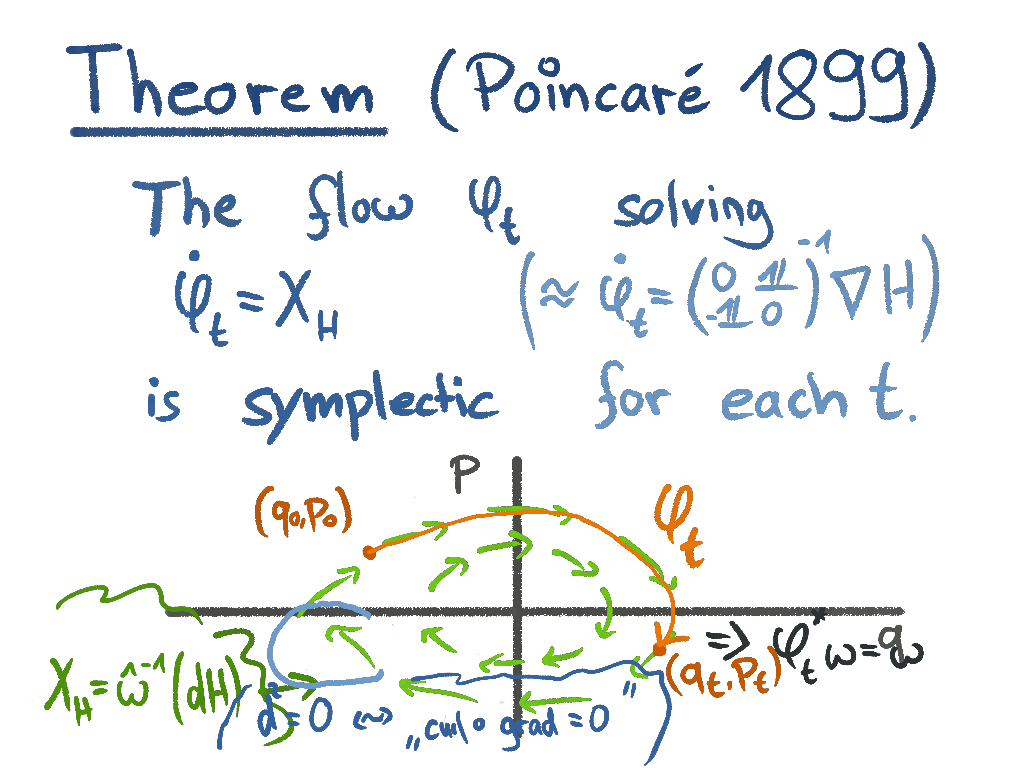 Theorem (Poincaré 1899)
The flow φₜ solving
φ̇ₜ = X_H (≈ φ̇ₜ = (0 𝟙 -𝟙 0)⁻¹ ∇H)
is symplectic for each t.
P
(q₀, p₀) φₜ
(qₜ, pₜ) => φₜ* ω = ω
X_H = ω̂⁻¹(dH)
d² = 0 <~> „curl ∘ grad = 0"